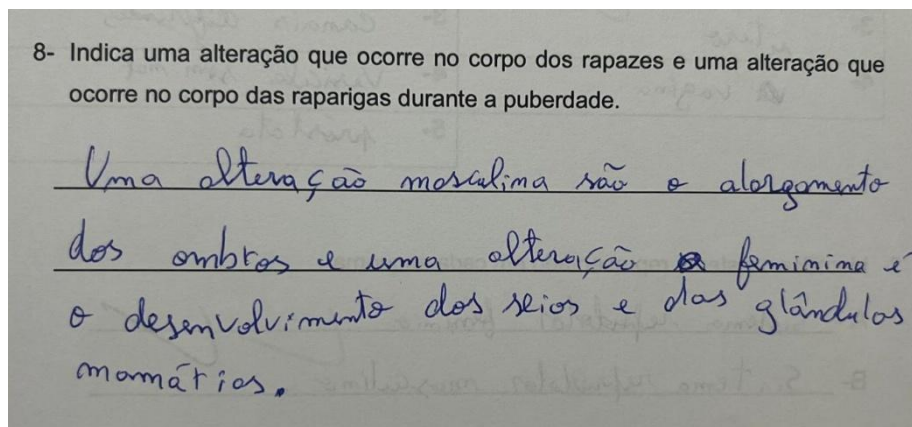 8- Indica uma alteração que ocorre no corpo dos rapazes e uma alteração que
ocorre no corpo das raparigas durante a puberdade.
Uma alteração masculina são o alargamento
dos ombros e uma alteração feminina é
o desenvolvimento dos seios e das glândulas
mamárias.